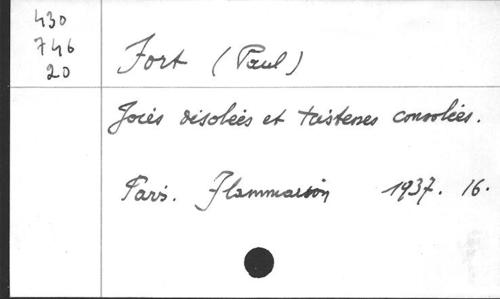 430
746
20
Fort (Paul)
Joies désolées et tristesses consolées.
Paris. Flammarion 1937. 16.